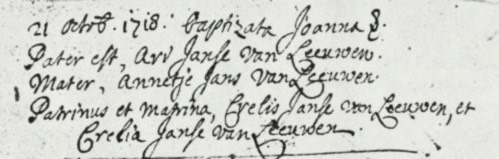 21 octrb. 1718. baptizata Joanna
Pater est, Ari Janse van Leeuwen.
Mater, Annetje Jans van Leeuwen.
Patrinus et matrina, Crelis Janse van Leeuwen, et
Crelia Janse van Leeuwen.